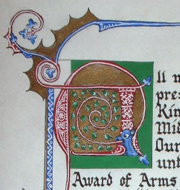 A ll m
pres
Kin
Mid
Our
unt
Award of Arms